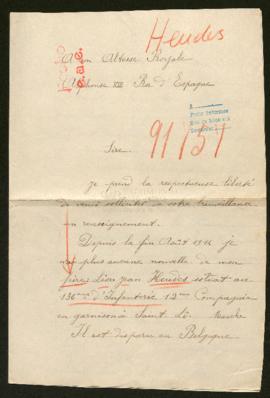 Heudes
A Son Altesse Royale
Alphonse XIII Roi d'Espagne
91/51
Sire
je prend la respectueuse liberté
de venir solliciter de votre bienveillance
un renseignement.
Depuis la fin Août 1914 je
n'ai plus aucune nouvelle de mon
frère Léon Jean Heudes soldat au
136ème d'Infanterie 12me Compagnie
en garnison à Saint Lô. Manche
Il est disparu en Belgique